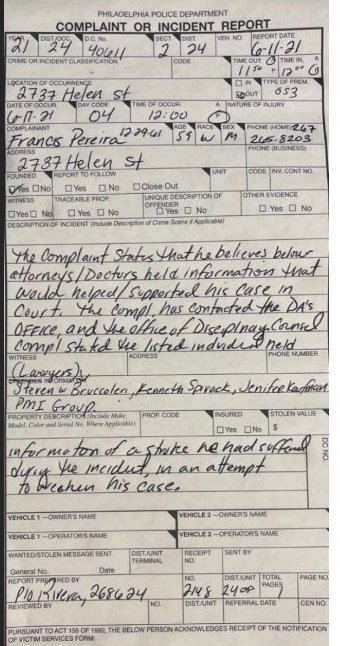 PHILADELPHIA POLICE DEPARTMENT
COMPLAINT OR INCIDENT REPORT
YEAR DIST/OCC. D.C. No. SECT. DIST. VEH. NO. REPORT DATE
21 24 40611 2 24 6-11-21
CRIME OR INCIDENT CLASSIFICATION CODE TIME OUT TIME IN.
1150 1200
LOCATION OF OCCURRENCE IN TYPE OF PREM.
2737 Helen st OUT 053
DATE OF OCCUR. DAY CODE TIME OF OCCUR. A NATURE OF INJURY
6-11-21 04 12:00
COMPLAINANT AGE RACE SEX PHONE (HOME) 267
Francis Pereira 12-29-61 59 W M 265-8203
ADDRESS PHONE (BUSINESS)
2737 Helen st
FOUNDED REPORT TO FOLLOW UNIT CODE INV. CONT. NO.
Yes No Yes No Close Out
WITNESS TRACEABLE PROP. UNIQUE DESCRIPTION OF OFFENDER OTHER EVIDENCE
Yes No Yes No Yes No Yes No
DESCRIPTION OF INCIDENT (Include Description of Crime Scene if Applicable)
The Complaint States that he believes below
attorneys/Doctors held information that
would helped/supported his case in
Court. The compl. has contacted the DA's
OFFICE, and the office of Discplnay Counsel
compl stated the listed individual held
WITNESS ADDRESS PHONE NUMBER
(Lawyers)
OFFENDER INFORMATION
Steven w Bruccoleri, Kenneth Spivack, Jenifer Kaufman
PMI Group.
PROPERTY DESCRIPTION (Include Make, PROP. CODE INSURED STOLEN VALUE
Model, Color and Serial No. Where Applicable) Yes No $
DC NO.
informaton of a stroke he had suffered
during the incident, in an attempt
to weaken his case.
VEHICLE 1 - OWNER'S NAME VEHICLE 2 - OWNER'S NAME
VEHICLE 1 - OPERATOR'S NAME VEHICLE 2 - OPERATOR'S NAME
WANTED/STOLEN MESSAGE SENT DIST./UNIT TERMINAL RECEIPT NO. SENT BY
General No. Date
REPORT PREPARED BY NO. DIST/UNIT TOTAL PAGES PAGE NO.
P/o Rivera, 268624 2148 24
REVIEWED BY NO. DIST/UNIT REFERRAL DATE CEN NO.
PURSUANT TO ACT 155 OF 1992, THE BELOW PERSON ACKNOWLEDGES RECEIPT OF THE NOTIFICATION
OF VICTIM SERVICES FORM: